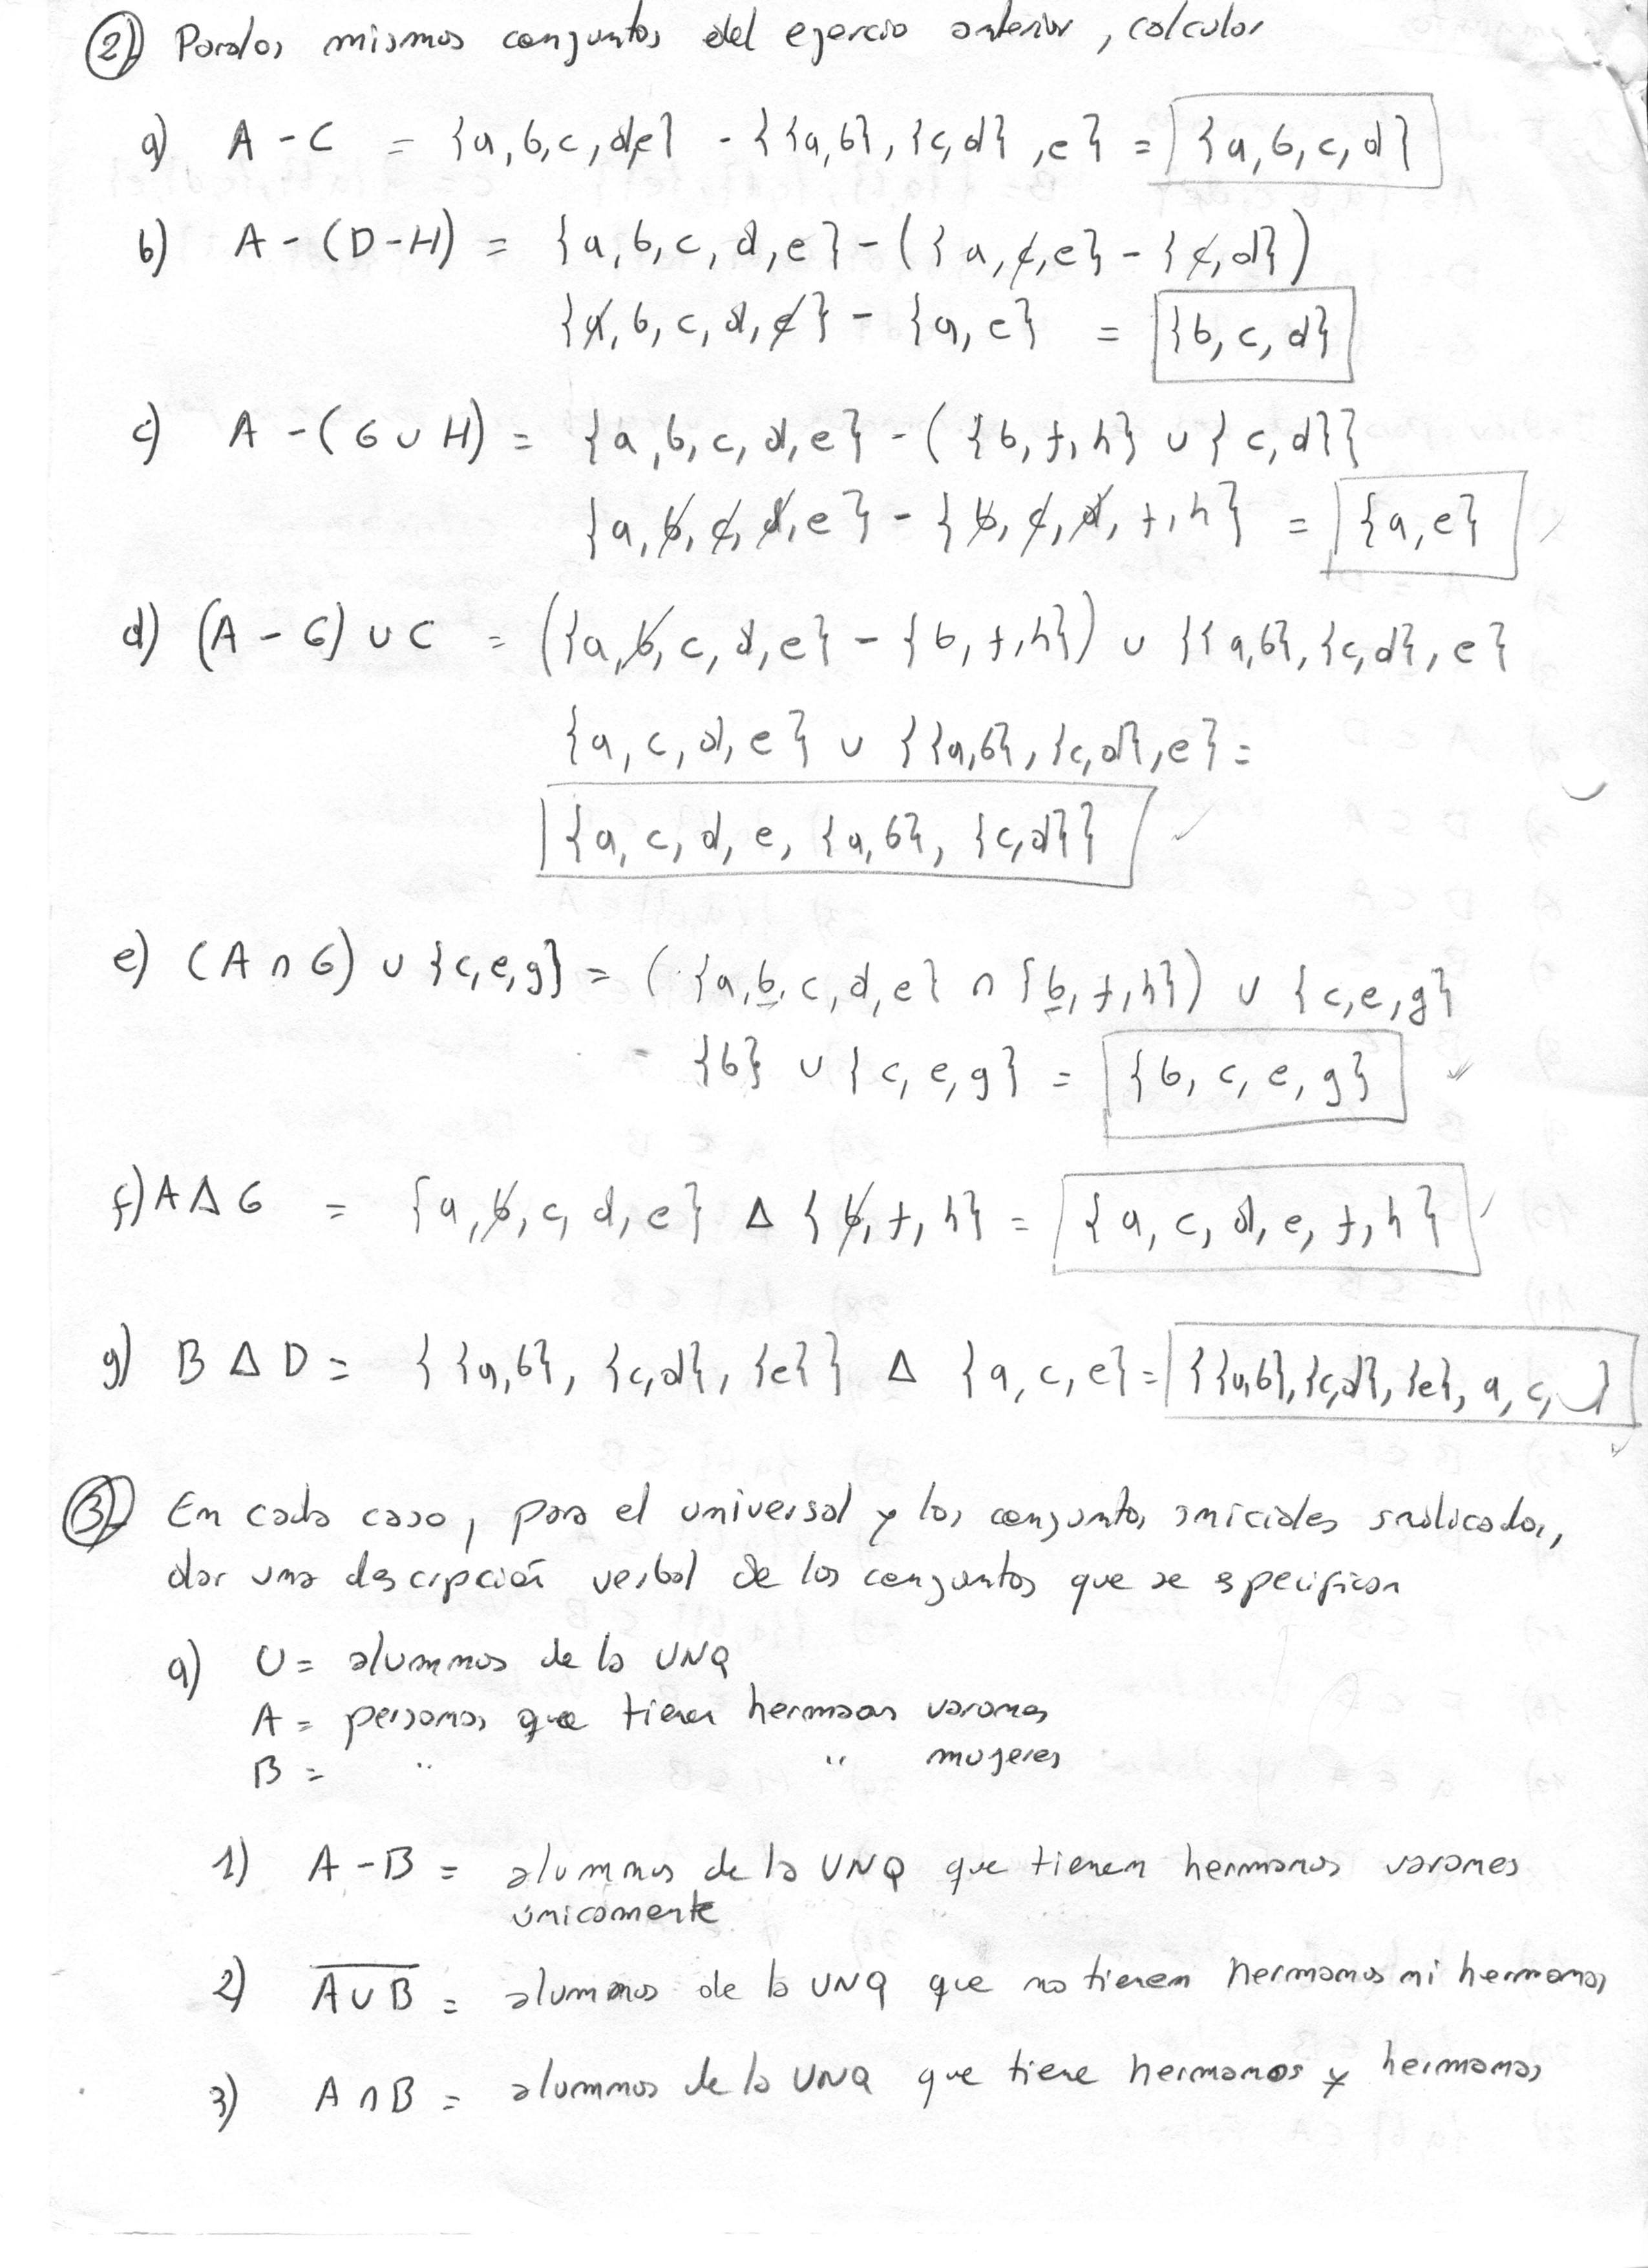 2) Para los mismos conjuntos del ejercio anterior, calcular
a) A - C = {a, b, c, d, e} - {{a, b}, {c, d}, e} = {a, b, c, d}
b) A - (D - H) = {a, b, c, d, e} - ({a, c, e} - {c, d})
{a, b, c, d, e} - {a, e} = {b, c, d}
c) A - (G ∪ H) = {a, b, c, d, e} - ({b, f, h} ∪ {c, d}}
{a, b, c, d, e} - {b, c, d, f, h} = {a, e}
d) (A - G) ∪ C = ({a, b, c, d, e} - {b, f, h}) ∪ {{a, b}, {c, d}, e}
{a, c, d, e} ∪ {{a, b}, {c, d}, e} =
{a, c, d, e, {a, b}, {c, d}}
e) (A ∩ G) ∪ {c, e, g} = ({a, b, c, d, e} ∩ {b, f, h}) ∪ {c, e, g}
= {b} ∪ {c, e, g} = {b, c, e, g}
f) A Δ G = {a, b, c, d, e} Δ {b, f, h} = {a, c, d, e, f, h}
g) B Δ D = {{a, b}, {c, d}, {e}} Δ {a, c, e} = {{a, b}, {c, d}, {e}, a, c, }
3) En cada caso, para el universal y los conjuntos iniciales indicados,
dar una descripción verbal de los conjuntos que se especifican
a) U = alumnos de la UNQ
A = personas que tienen hermanos varones
B = " " mujeres
1) A - B = alumnos de la UNQ que tienen hermanos varones
únicamente
2) \overline{A ∪ B} = alumnos de la UNQ que no tienen hermanos ni hermanas
3) A ∩ B = alumnos de la UNQ que tiene hermanos y hermanas